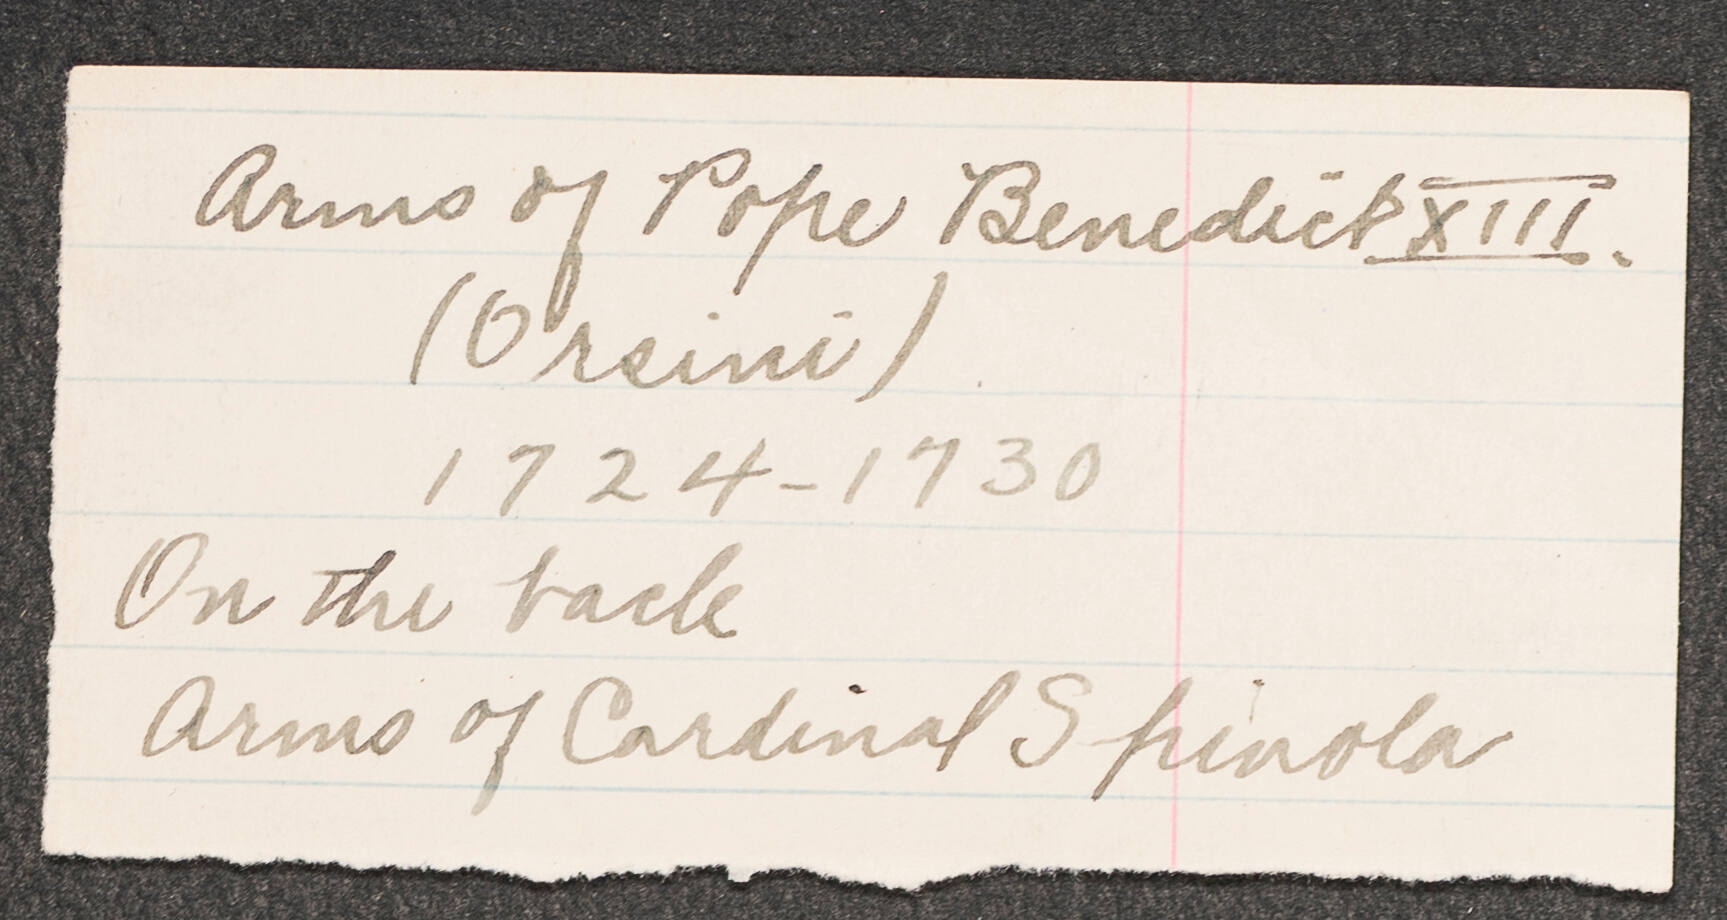 Arms of Pope Benedict XIII.
(Orsini)
1724-1730
On the back
Arms of Cardinal Spinola